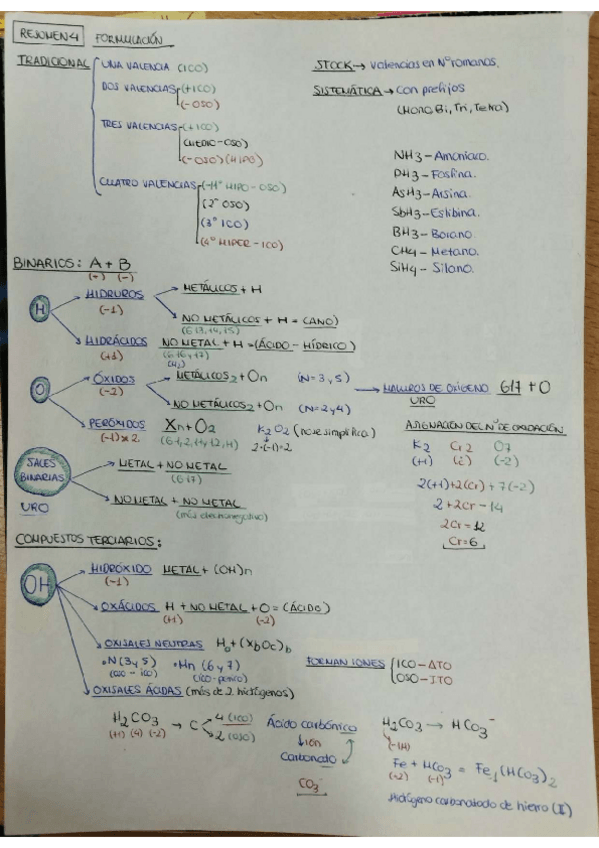 RESUMEN 4 FORMULACIÓN
TRADICIONAL
UNA VALENCIA (ICO)
DOS VALENCIAS (+ICO)
(-OSO)
TRES VALENCIAS (+ICO)
(MEDIO-OSO)
(-OSO)(HIPO)
CUATRO VALENCIAS (-1º HIPO-OSO)
(2º OSO)
(3º ICO)
(4º HIPER-ICO)
STOCK → valencias en Nº romanos.
SISTEMÁTICA → con prefijos
(MONO, Bi, Tri, Tetra)
NH3 - Amoniaco.
PH3 - Fosfina.
AsH3 - Arsina.
SbH3 - Estibina.
BH3 - Borano.
CH4 - Metano.
SiH4 - Silano.
BINARIOS: A + B
(+) (-)
H
HIDRUROS
(-1)
METÁLICOS + H
NO METÁLICOS + H = (ANO)
(613,14,15)
HIDRÁCIDOS NO METAL + H = (ÁCIDO - HÍDRICO)
(+1) (616 y 17)
O
ÓXIDOS
(-2)
METÁLICOS2 + On (N=3 y 5)
NO METÁLICOS2 + On (N=2 y 4)
HALUROS DE OXÍGENO 617 + O
URO
PERÓXIDOS Xn + O2
(-1)x2.
K2O2 (no se simplifica)
2·(-1)=2
ASIGNACIÓN DEL Nº DE OXIDACIÓN
K2 Cr2 O7
(+1) (-2)
2(+1)+2(Cr)+7(-2)
2+2Cr-14
2Cr=12
Cr=6
SALES BINARIAS
URO
METAL + NO METAL
(617)
NO METAL + NO METAL
(más electronegativo)
COMPUESTOS TERCIARIOS:
OH
HIDRÓXIDO METAL + (OH)n
(-1)
OXÁCIDOS H + NO METAL + O = (ÁCIDO)
(+1) (-2)
OXISALES NEUTRAS Ha + (XbOc)b
•N(3 y 5) •Mn (6 y 7)
(oso - ico)
FORMAN IONES
ICO - ATO
OSO - ITO
OXISALES ÁCIDAS (más de 2 hidrógenos)
H2CO3 → C
(+1) (4) (-2)
4 (ICO)
2 (OSO)
Ácido carbónico
↓ ION
Carbonato
CO3-
H2CO3 → HCO3-
(-1H)
Fe + HCO3 = Fe1(HCO3)2
(-2) (-1)
Hidrógeno carbonatado de hierro (II)